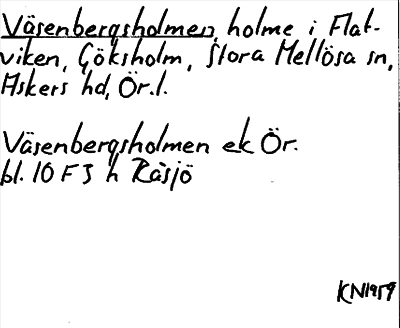 Väsenbergsholmen, holme i Flat-
viken, Göksholm, Stora Mellösa sn,
Askers hd, Ör.l.
Väsenbergsholmen ek Ör.
bl. 10 F 3 h Råsjö
KN1959